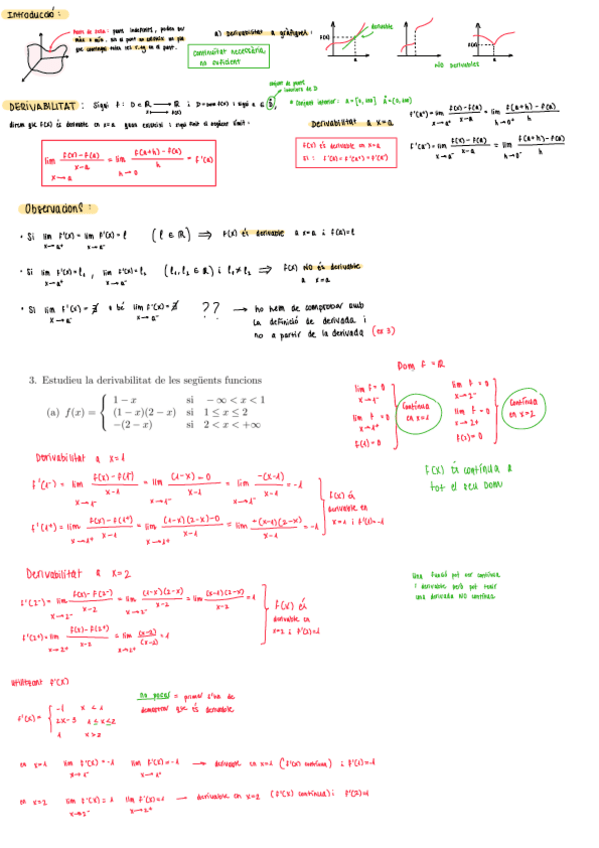 Introducció:
Punts de sella: punts indefinits, poden ser
màx o mín.
a) Derivabilitat a gràfiques:
continuïtat necessària
no suficient
derivable
f(x)
f(a)
NO derivables
conjunt de punts
interiors de D
DERIVABILITAT: Sigui f: D ⊂ ℝ → ℝ i D = Dom f(x) i sigui a ∈ D̊,
x → f(x)
• Conjunt interior: A = [0, ∞) Å = (0, ∞)
direm que f(x) és derivable en x=a quan existeixi i sigui finit el següent límit:
lim x→a (f(x)-f(a))/(x-a) = lim h→0 (f(a+h)-f(a))/h = f'(a)
Derivabilitat a x=a
f(x) és derivable en x=a
si: f'(a) = f'(a⁺) = f'(a⁻)
f'(a⁺) = lim x→a⁺ (f(x)-f(a))/(x-a) = lim h→0⁺ (f(a+h)-f(a))/h
f'(a⁻) = lim x→a⁻ (f(x)-f(a))/(x-a) = lim h→0⁻ (f(a+h)-f(a))/h
Observacions:
• Si lim x→a⁺ f'(x) = lim x→a⁻ f'(x) = l (l ∈ ℝ) ⇒ f(x) és derivable a x=a i f'(a)=l
• Si lim x→a⁺ f'(x) = l₁, lim x→a⁻ f'(x) = l₂ (l₁, l₂ ∈ ℝ) i l₁ ≠ l₂ ⇒ f(x) NO és derivable
a x=a
• Si lim x→a⁻ f'(x) = ∄ o bé lim x→a⁻ f'(x) = ∄ ?? → ho hem de comprobar amb
la definició de derivada i
no a partir de la derivada (ex 3)
3. Estudieu la derivabilitat de les següents funcions
(a) f(x) = { 1 − x si −∞ < x < 1
(1 − x)(2 − x) si 1 ≤ x ≤ 2
−(2 − x) si 2 < x < +∞
Dom f = ℝ
lim x→1⁻ f = 0
lim x→1⁺ f = 0
f(1) = 0
Contínua
en x=1
lim x→2⁻ f = 0
lim x→2⁺ f = 0
f(2) = 0
Contínua
en x=2
f(x) és contínua a
tot el seu Domini
Derivabilitat a x=1
f'(1⁻) = lim x→1⁻ (f(x)-f(1⁻))/(x-1) = lim x→1⁻ ((1-x)-0)/(x-1) = lim x→1⁻ (-(x-1))/(x-1) = -1
f'(1⁺) = lim x→1⁺ (f(x)-f(1⁺))/(x-1) = lim x→1⁺ ((1-x)(2-x)-0)/(x-1) = lim x→1⁺ (-(x-1)(2-x))/(x-1) = -1
f(x) és
derivable en
x=1 i f'(1)=-1
Derivabilitat a x=2
f'(2⁻) = lim x→2⁻ (f(x)-f(2⁻))/(x-2) = lim x→2⁻ ((1-x)(2-x))/(x-2) = lim x→2⁻ ((x-1)(2-x))/(x-2) = 1
f'(2⁺) = lim x→2⁺ (f(x)-f(2⁺))/(x-2) = lim x→2⁺ (x-2)/(x-2) = 1
f(x) és
derivable en
x=2 i f'(2)=1
Una funció pot ser contínua
i derivable però pot tenir
una derivada NO contínua
Utilitzant f'(x)
no posar = primer s'ha de
demostrar que és derivable
f'(x) = { -1 x < 1
2x-3 1 ≤ x ≤ 2
1 x > 2
en x=1 lim x→1⁻ f'(x) = -1 lim x→1⁺ f'(x) = -1 → derivable en x=1 (f'(x) contínua) i f'(1)=-1
en x=2 lim x→2⁻ f'(x) = 1 lim x→2⁺ f'(x) = 1 → derivable en x=2 (f'(x) contínua) i f'(2)=1